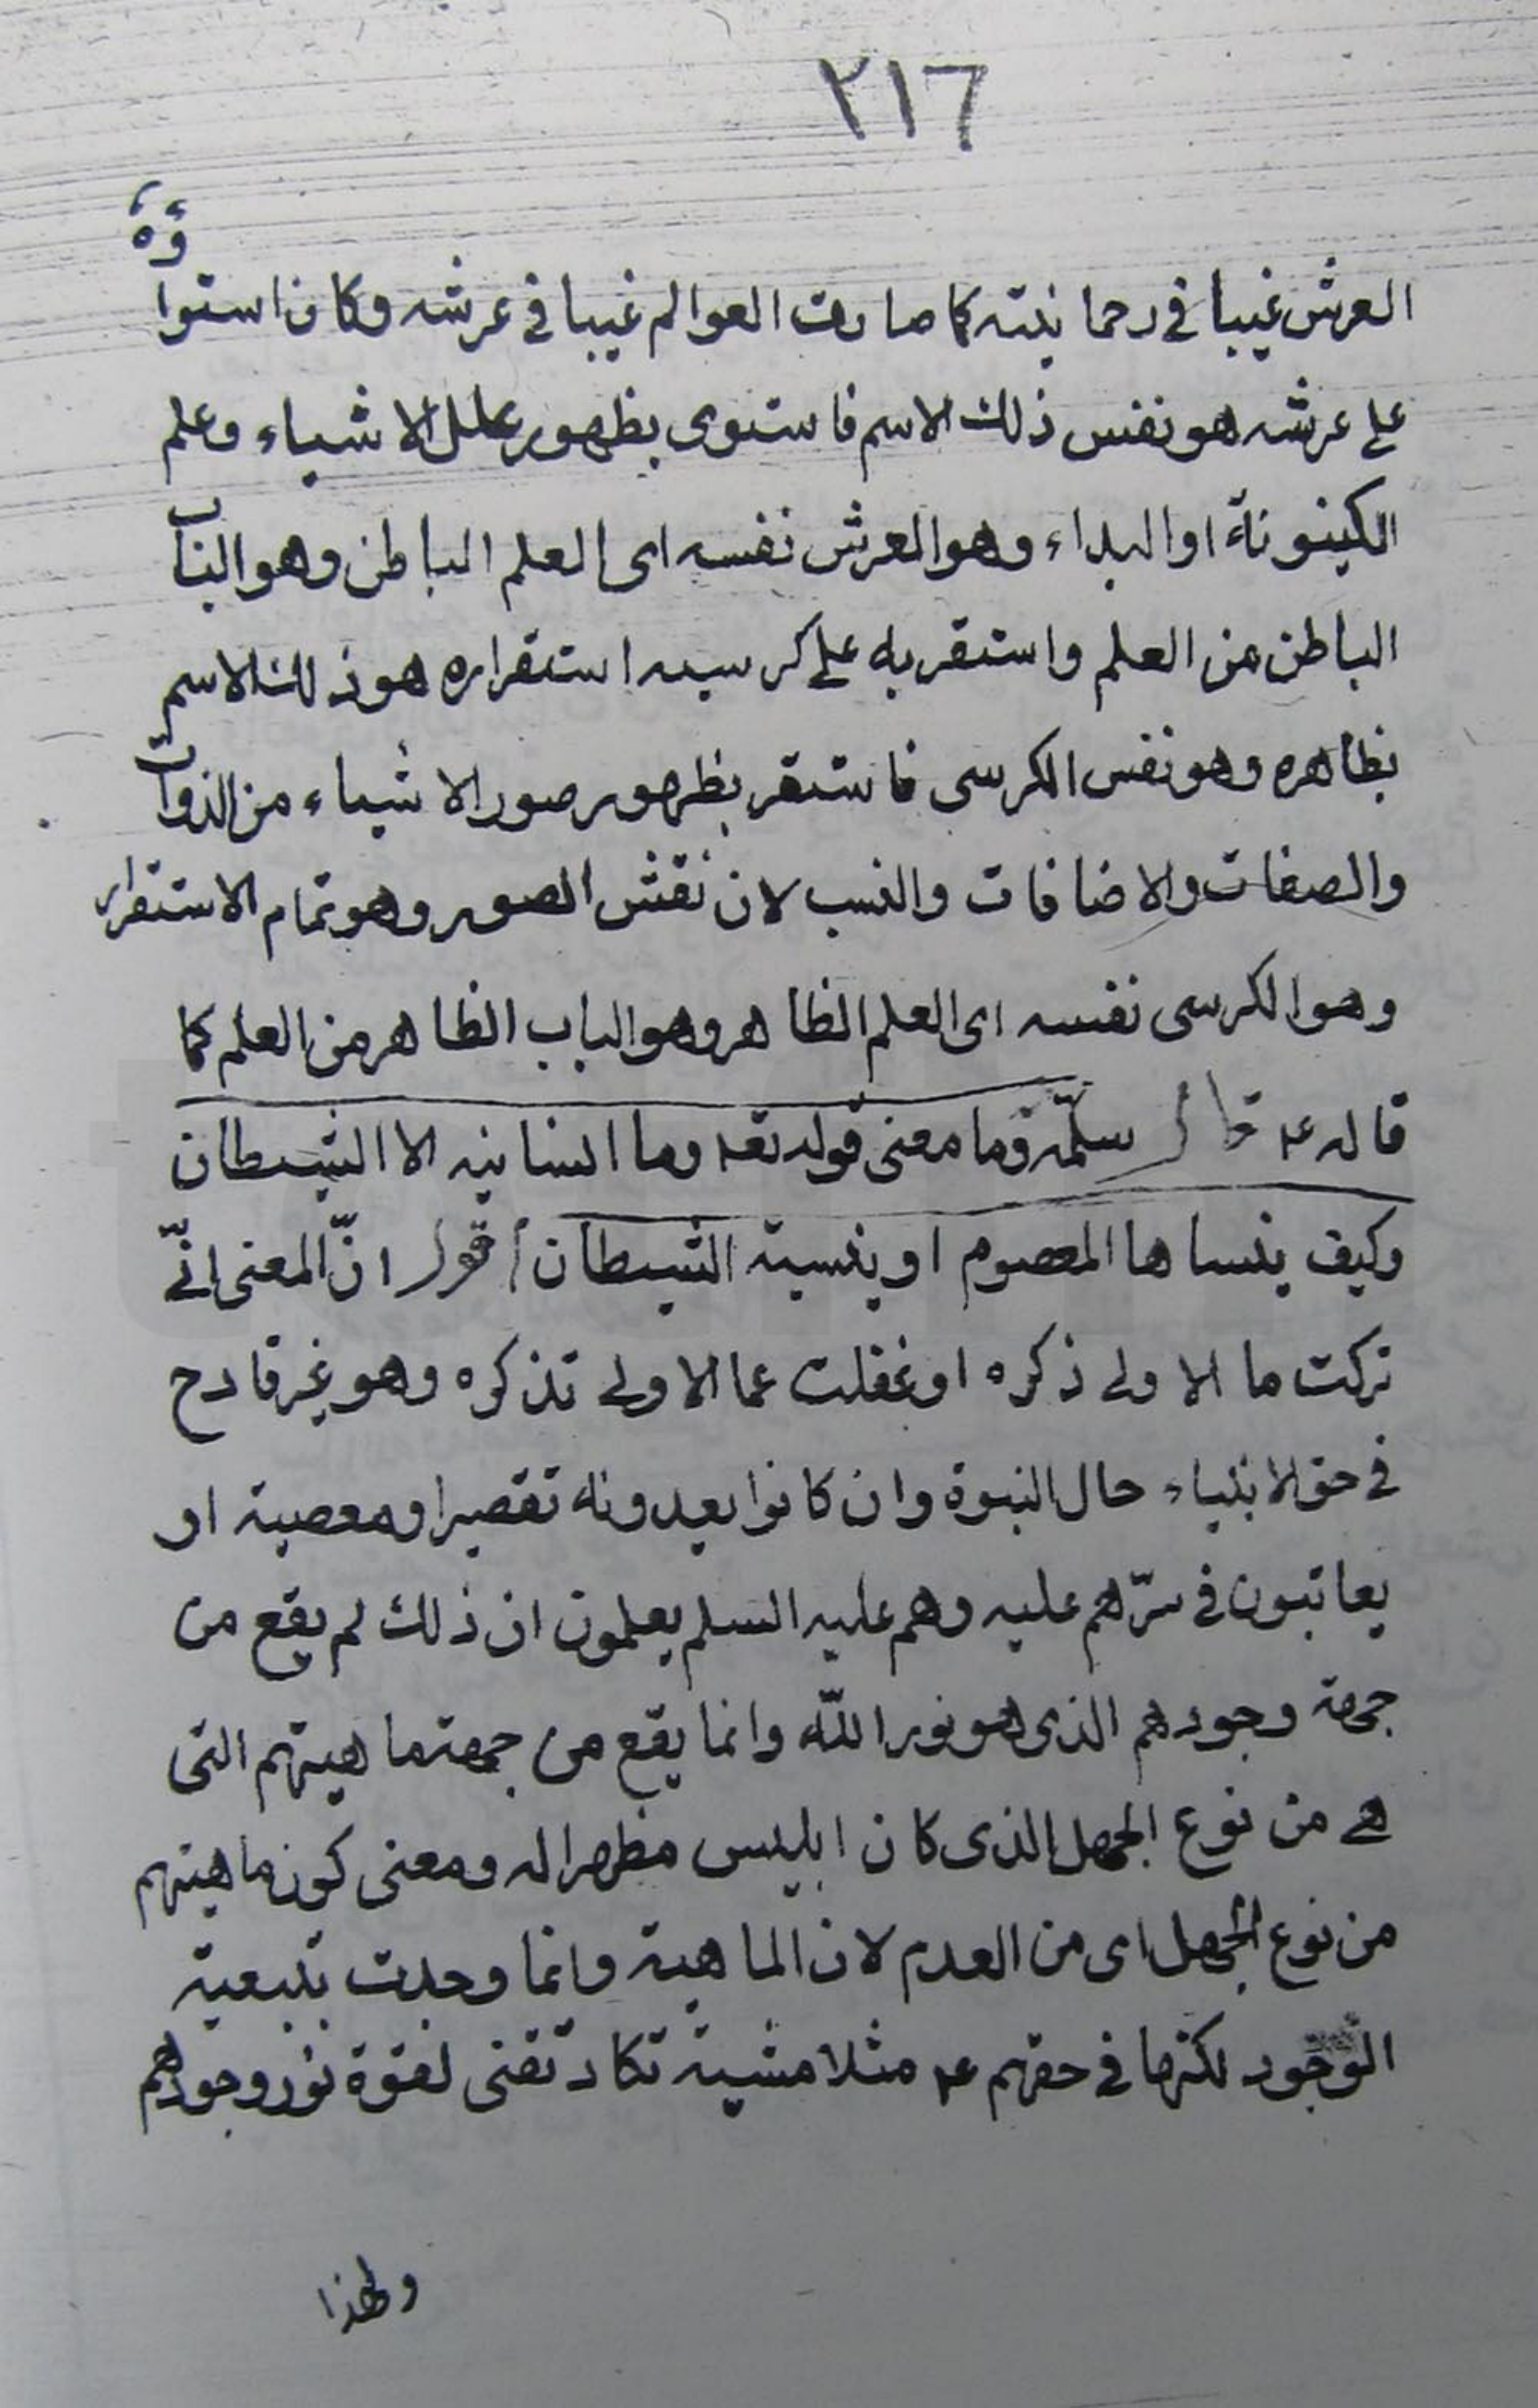 ٢١٦
العرش غيبا فى رحمانيته كما صارت العوالم غيبا فى عرشه وكان استواؤه
على عرشه هو نفس ذلك الاسم فاستوى بظهور علل الاشياء وعلم
الكينونة او البداء وهو العرش نفسه اى العلم الباطن وهو الباب
الباطن من العلم واستقر به على كرسيه استقراره هو ذلك الاسم
بظاهره وهو نفس الكرسى فاستقر بظهور صور الاشياء من الذوات
والصفات والاضافات والنسب لان نقش الصور وهو تمام الاستقرار
وهو الكرسى نفسه اى العلم الظاهر وهو الباب الظاهر من العلم كما
قاله ع قال سلمه وما معنى قوله تعه وما انسانيه الا الشيطان
وكيف ينساها المعصوم او ينسيه الشيطان اقول انّ المعنى انّى
تركت ما الاولى ذكره او غفلت عما الاولى تذكره وهو غير قادح
فى حق الانبياء حال النبوة وان كانوا يعدونه تقصيرا ومعصية او
يعاتبون فى سرّهم عليه وهم عليه السلم يعلمون ان ذلك لم يقع من
جهة وجودهم الذى هو نور اللّه وانما يقع من جهة ماهيتهم التى
هى من نوع الجهل الذى كان ابليس مظهرا له ومعنى كون ماهيتهم
من نوع الجهل اى من العدم لان الماهية وانما وجدت بتبعية
الوجود لكنها فى حقهم ع مثلا مشيته تكاد تفنى لقوة نور وجودهم
ولهذا